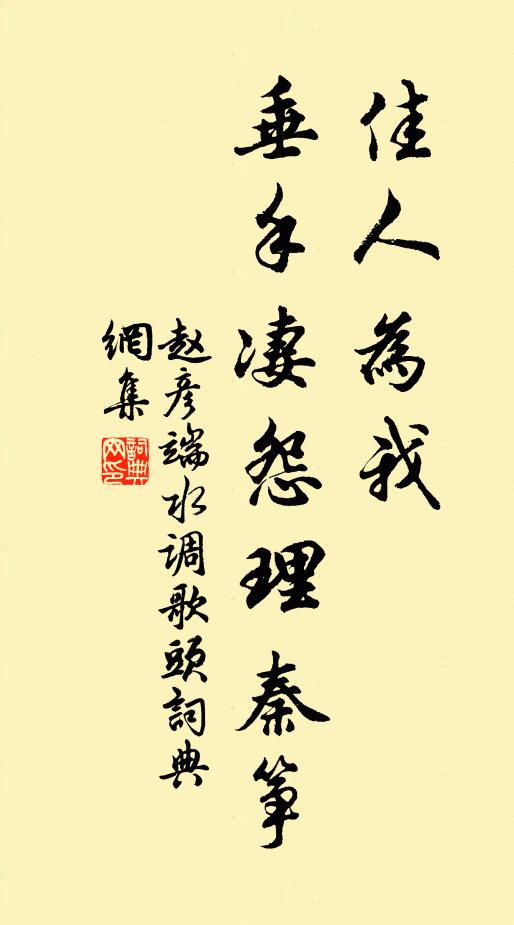 佳人為我
垂手凄怨理秦筝
赵彦端水调歌頭詞典
網集
詞典
网印